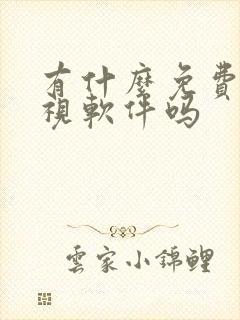 有什麼免費
視軟件嗎
雲家小錦鯉